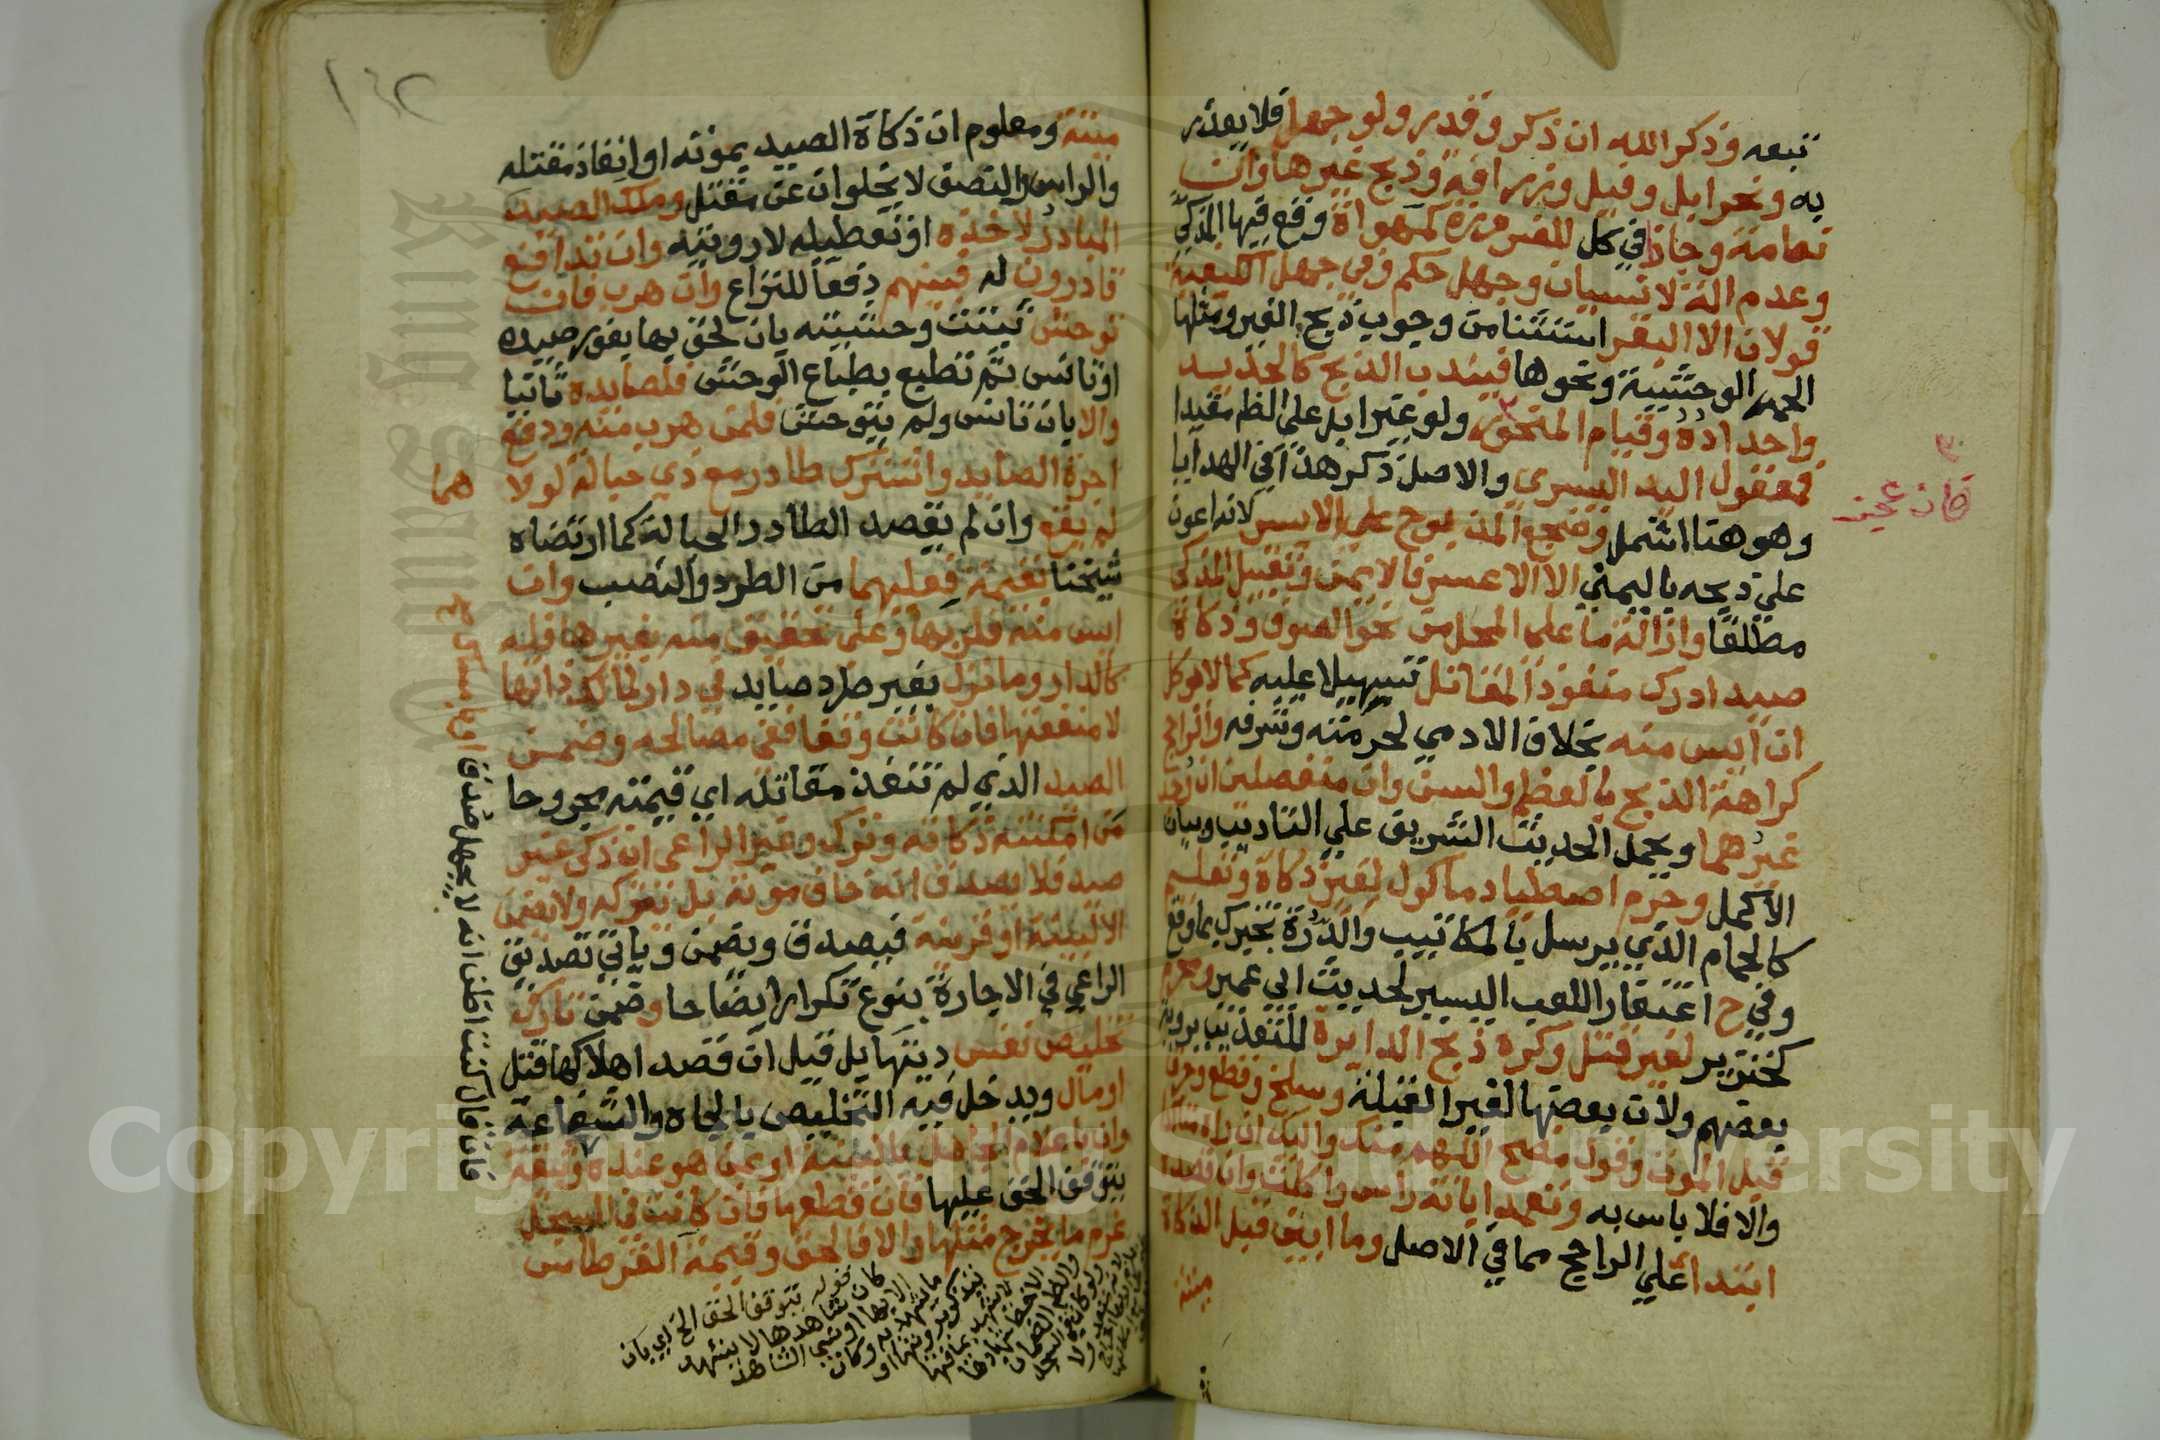 تبعه وذكر الله ان ذكر وقدر ولو جهل فلا يعذر
به ونحر ابل وفيل وزرافة وذبح غيرها وان
نعامة وجاز في كل للضرورة كمهواة وقع فيها المذكى
وعدم الة لا نسيان وجهل حكم وفي جهل الكيفية
قولان الا البقر استثنا من وجوب ذبح الغير ومثلها
الحمر الوحشية ونحوها فيندب الذبح كالحديد
واحداده وقيام المنحور ولو غير ابل على الظ مقيدا
فمعقول اليد اليسرى والاصل ذكر هذا في الهدايا
وهو هنا اشمل وضجع المذبوح على الايسر لانه اعون
على ذبحه باليمنى الا الاعسر فالايمن وتقبيل المذكى
مطلقا وازالة ما على المحل من نحو الصوف وذكاة
صيد ادرك منفوذ المقاتل تسهيلا عليه كما لا يوكل
ان ايس منه بخلاف الادمي لحرمته وشرفه والراجح
كراهة الذبح بالعظم والسن وان منفصلين ان وجد
غيرهما ويحمل الحديث الشريف على التاديب وبيان
الاكمل وحرم اصطياد ماكول لغير ذكاة وتعليم
كالحمام الذي يرسل بالمكاتيب والدرة تخبرك بما وقع
وفي ح اغتفار اللعب اليسير لحديث ابي عمير وحرم
كخنزير لغير قتل وكره ذبح الدايرة للتعذيب برؤية
بعضهم ولان بعضها لغير القبلة وسلخ وقطع وحرق
قبل الموت وقول مضح اللهم منك واليك ان راه سنة
والا فلا باس به وتعمد ابانة راس واكلت وان تعمد
ابتداء على الراجح مما في الاصل وما ابين قبل الذكاة
ميتة
فان عجز
١٣٢
ميتة ومعلوم ان ذكاة الصيد بموته او انفاذ مقتله
والراس والنصف لا يخلوان عن مقتل وملك الصيد
المبادر لاخذه او تعطيله لا رويته وان تدافع
قادرون له فبينهم دفعا للنزاع وان هرب فان
توحش ثبتت وحشيته بان لحق بها بفور صيده
او تانس ثم تطبع بطباع الوحش فلصايده ثانيا
والا بان تانس ولم يتوحش فلمن هرب منه ودفع
اجرة الصايد واشترك طارد مع ذي حبالة لولا
هما
لم يقع وان لم يقصد الطارد الحبالة كما ارتضاه
شيخنا بقيمة فعليهما من الطرد والنصب وان
ايس منه فلربها وعلى تحقيق منه بغيرها فله
كالدار وما نزل بغير طرد صايد في دار لمالك ذاتها
لا منفعتها فان كانت وقفا ففي مصالحه وضمن
الصيد الذي لم تنفذ مقاتله اي قيمته مجروحا
من امكنته ذكاته وترك وغير الراعي ان ذكى غير
صيد فلا يصدق انه خاف موته بل تركه ولا يضمن
الا لبينة او قرينة فيصدق ويضمن وياتي تصديق
الراعي في الاجارة بنوع تكرار ايضاحا وضمن تارك
تخليص نفس ديتها بل قيل ان قصد اهلاكها قتل
او مال ويدخل فيه التخليص بالجاه والشفاعة
وان باعلام الجاهل بالبينة او عن هو عنده وثيقة
يتوقف الحق عليها فان قطعها فان كانت في السجل
غرم ما يخرج مثلها والا فالحق وقيمة القرطاس
قوله يتوقف الحق الخ اي بان
كان شاهدها لا يشهد
الا بها او نسي الشاهد